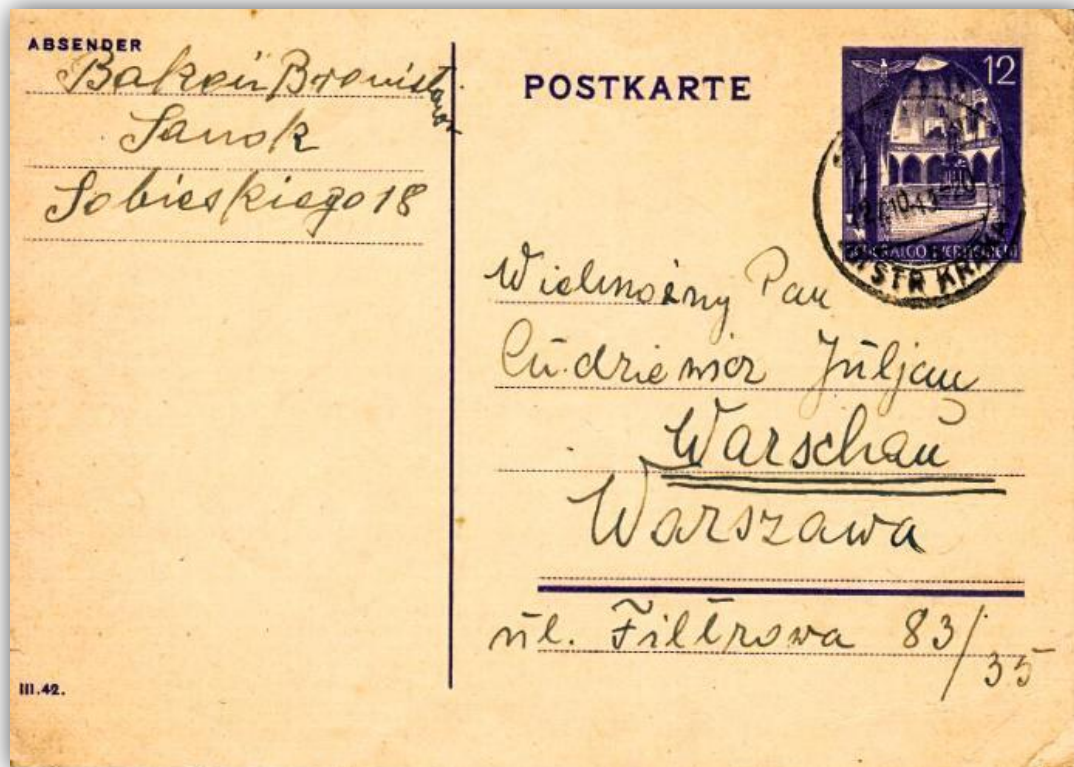 ABSENDER
Bronisław
Sanok
Sobieskiego 18
POSTKARTE
12
12.10.43-20
DISTR KRAKAU
Wielmożny Pan
Cudziewicz Juljan
Warschau
Warszawa
ul. Filtrowa 83/35
III.42.